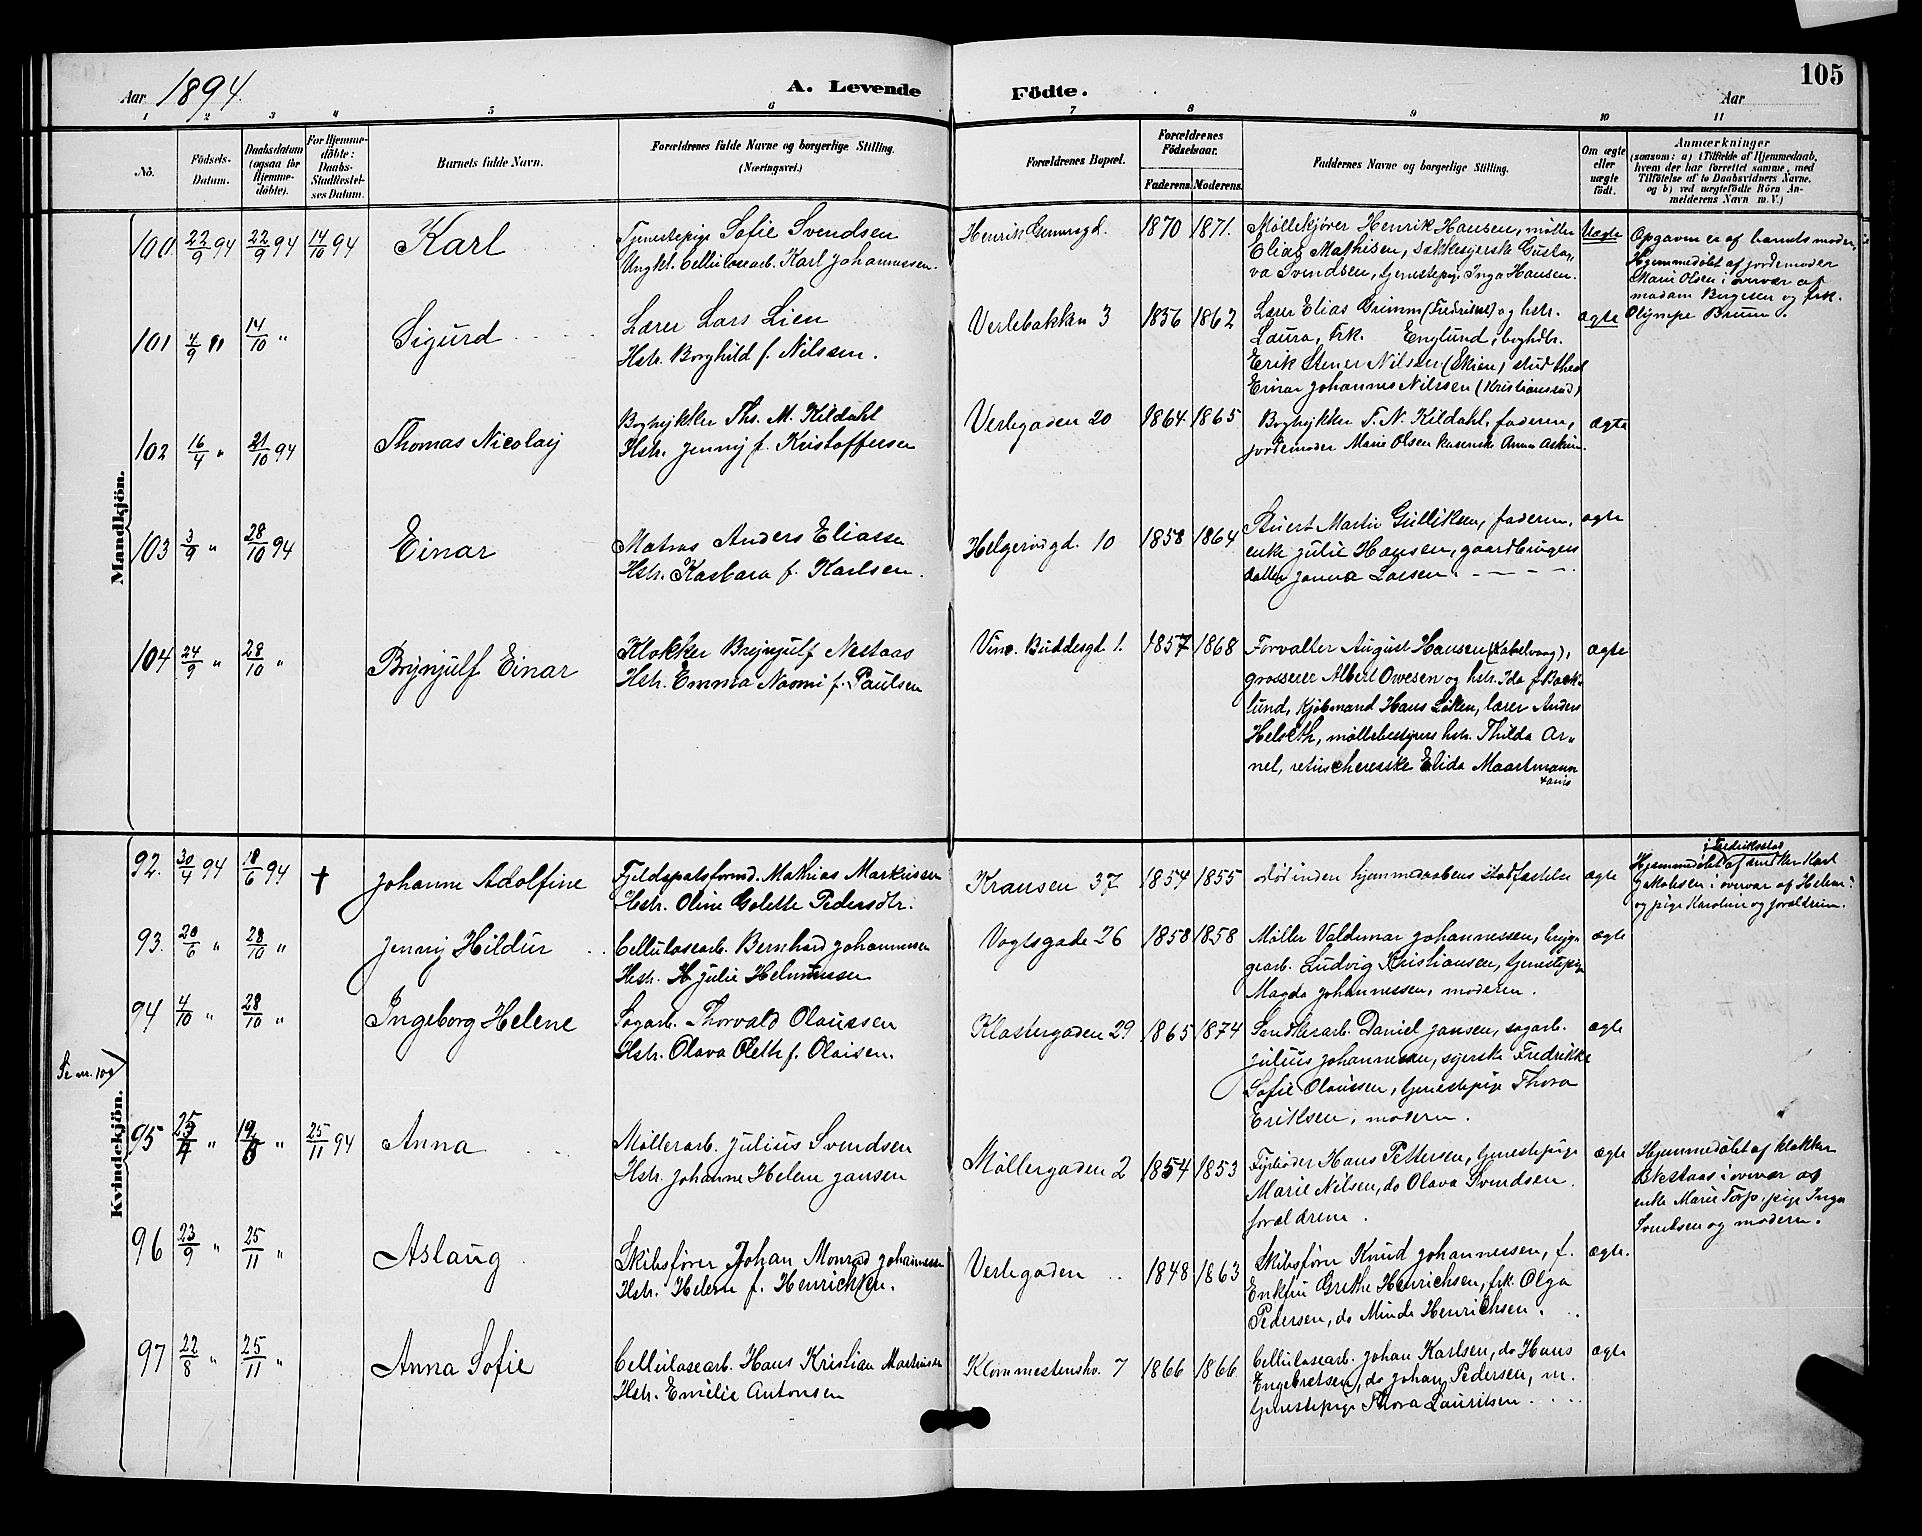 Aar 1894.
A. Levende Födte.
105
Aar
1 2 3 4 5 6 7 8 9 10 11
No.
Födsels-Datum.
Daabsdatum (ogsaa for Hjemme-döbte).
For Hjemme-döbte: Daabs-Stadfæstel-ses Datum.
Barnets fulde Navn.
Forældrenes fulde Navne og borgerlige Stilling. (Næringsvei.)
Forældrenes Bopæl.
Forældrenes Födselsaar.
Faderens. Moderens.
Faddernes Navne og borgerlige Stilling.
Om ægte eller uægte födt.
Anmærkninger
(saasom: a) i Tilfælde af Hjemmedaab, hvem der har forrettet samme, med Tilföielse af to Daabsvidners Navne, og b) ved uægtefödte Börn Anmelderens Navn m. V.)
Mandkjön.
100. 22/9 94 22/9 94 14/10 94 Karl
Tjenestepige Sofie Svendsen
Ungkl. Cellulosearb. Karl Johannessen.
Henrik Gerners gd. 1870 1871.
Møllekjører Henrik Hansen, møller
Elias Mathisen, sækkesyerske Gusta-
va Svendsen, tjenestepige Inga Hansen.
Uægte
Opgaven er af barnets moder,
Hjemmedøbt af jordemoder
Marie Olsen i overvær af
madam Børgesen og frk.
Olympe Bruun.
101 4/9 " 14/10 " Sigurd
Lærer Lars Lien
Hstr. Borghild f. Nilssen.
Verlebakken 3 1856 1862
Lærer Elias Grimm (Fredrikst) og hstr.
Laura, Frk. Englund, boghdlr.
Erik Stener Nilssen (Skien) stud theol
Einar Johannes Nilssen (Kristianssad)
ægte
102 16/4 " 21/10 94 Thomas Nicolay
Bogtrykker Ths. M. Kildahl
Hstr. Jenny f. Kristoffersen
Verlegaden 20 1864 1865
Bogtrykker T. N. Kildahl, faderen,
jordemoder Marie Olsen kasserske Anna Askim.
ægte
103 3/9 " 28/10 94 Einar
Matros Anders Eliassen
Hstr. Karbara f. Karlsen.
Helgerødgd. 10 1858 1864
Stuert Martin Gulliksen, faderen,
enke Julie Hansen, gaardbrugers
datter Janna Larsen.
ægte
104 24/9 " 28/10 " Brynjulf Einar
Klokker Brynjulf Nestaas
Hstr. Emma Naomi f. Paulsen
Vinc. Buddesgt 1. 1857 1868
Forvalter August Hansen (Kabelvaag),
grosserer Albert Owesen og hstr. Ida f. Back-
lund, kjøbmand Hans Løken, lærer Anders
Helseth, møllebestyrers hstr. Thilda Ar-
nel, retucheresske Elida Maartmann
ægte
Kvindekjön.
92. 30/4 94 18/6 94 † Johanne Adolfine
Fjeldspatsformd. Mathias Markussen
Hstr. Oline Golette Pedersdtr.
Kransen 37 1854 1855
død inden hjemmedaabens stadfæstelse
ægte
i Fredriksstad
Hjemmedøbt af snedker Karl
Jakobsen i overvær af Helene
og pige Karoline og forældrene.
93. 20/6 " 28/10 " Jenny Hildur
Cellulosearb. Bernhard Johannessen
Hstr. H Julie Helmussen
Vogtsgade 26 1858 1858
Møller Valdemar Johannessen, bryg-
gearb. Ludvig Kristiansen, tjenestepige
Magda Johannessen, moderen.
ægte
94 4/10 " 28/10 " Ingeborg Helene
Sagarb. Thorvald Olaussen
Hstr. Olava Oleth f. Olaisen.
Klostergaden 29 1865 1874
Snedkerarb. Daniel Jansen, sagarb.
Julius Johannessen, syerske Fredrikke
Sofie Olaussen, tjenestepige Thora
Eriksen, moderen.
ægte
Se nr. 109
95 " " 25/11 94 Anna
Møllerarb. Julius Svendsen
Hstr. Johanne Helene Jansen
Møllergaden 2 1854 1853
Fyrbøder Hans Pettersen, tjenestepige
Marie Nilsen, do Olava Svendsen.
forældrene.
ægte
Hjemmedøbt af klokker
Nestaas i overvær af
enke Marie Torp, pige Inga
Svendsen og moderen.
96 23/9 " 25/11 " Aslaug
Skibsfører Johan Monrad Johannessen
Hstr. Helene f. Henrichsen.
Verlegaden 1848 1863
Skibsfører Knud Johannessen, f.
Enkefru Grethe Henrichsen, frk. Olga
Pedersen, do Minda Henrichsen.
ægte.
97 22/8 " 25/11 " Anna Sofie
Cellulosearb. Hans Kristian Martinsen
Hstr. Emilie Antonsen
Klommestenshv. 7 1866 1866
Cellulosearb. Johan Karlsen, do Hans
Engebretsen, do Johan Pedersen, m.
tjenestepige Thora Lauritsen
ægte